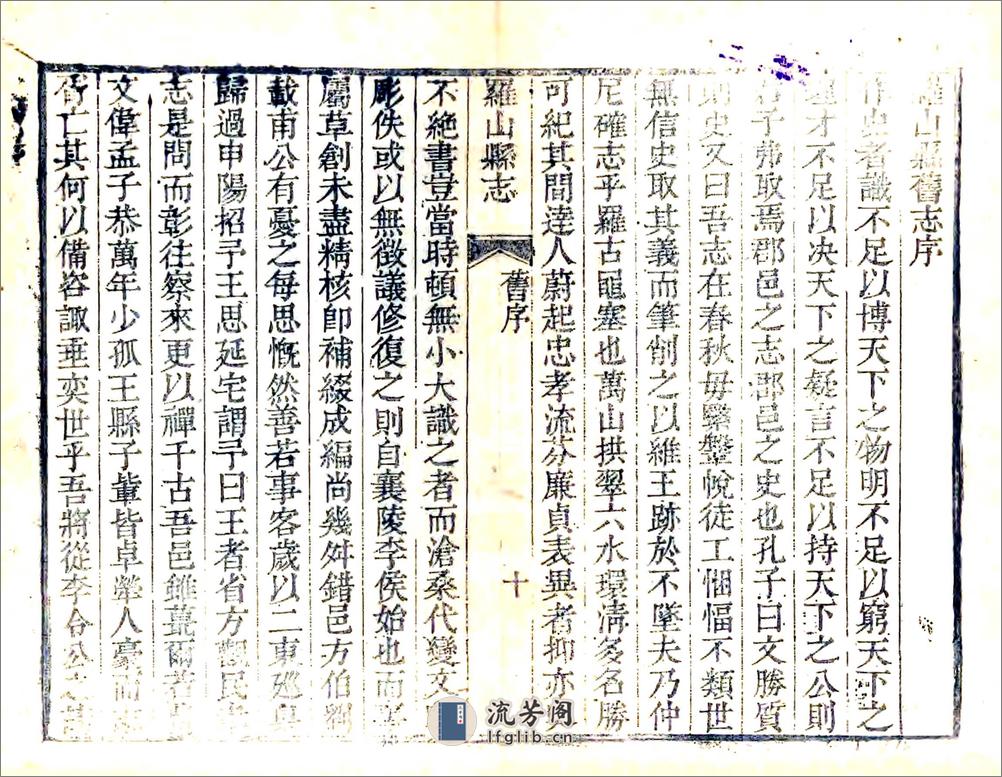 羅山縣舊志序
作史者識不足以博天下之物明不足以窮天下之
才不足以决天下之疑言不足以持天下之公則
君子弗取焉郡邑之志郡邑之史也孔子曰文勝質
則史又曰吾志在春秋毋繫鞶帨徒工悃愊不類世
無信史取其義而筆削之以維王跡於不墜夫乃仲
尼確志乎羅古黽塞也萬山拱翠六水環淸多名勝
可紀其間逹人蔚起忠孝流芬廉貞表異者抑亦
羅山縣志
舊序
十
不絶書豈當時頓無小大識之者而滄桑代變文
彫佚或以無徵議修復之則自襄陵李侯始也而
屬草創未盡精核卽補綴成編尚幾舛錯邑方伯劉
載甫公有憂之每思慨然善若事客歲以二東廵
歸過申陽招予王思延宅謂予曰王者省方觀民
志是問而彰往察來更以禪千古吾邑雖蕞爾者
文偉孟子恭萬年少孤王縣子輩皆卓犖人豪而
胥亡其何以備咨諏垂奕世乎吾將從李令公之
流芳阁
lfglib.cn